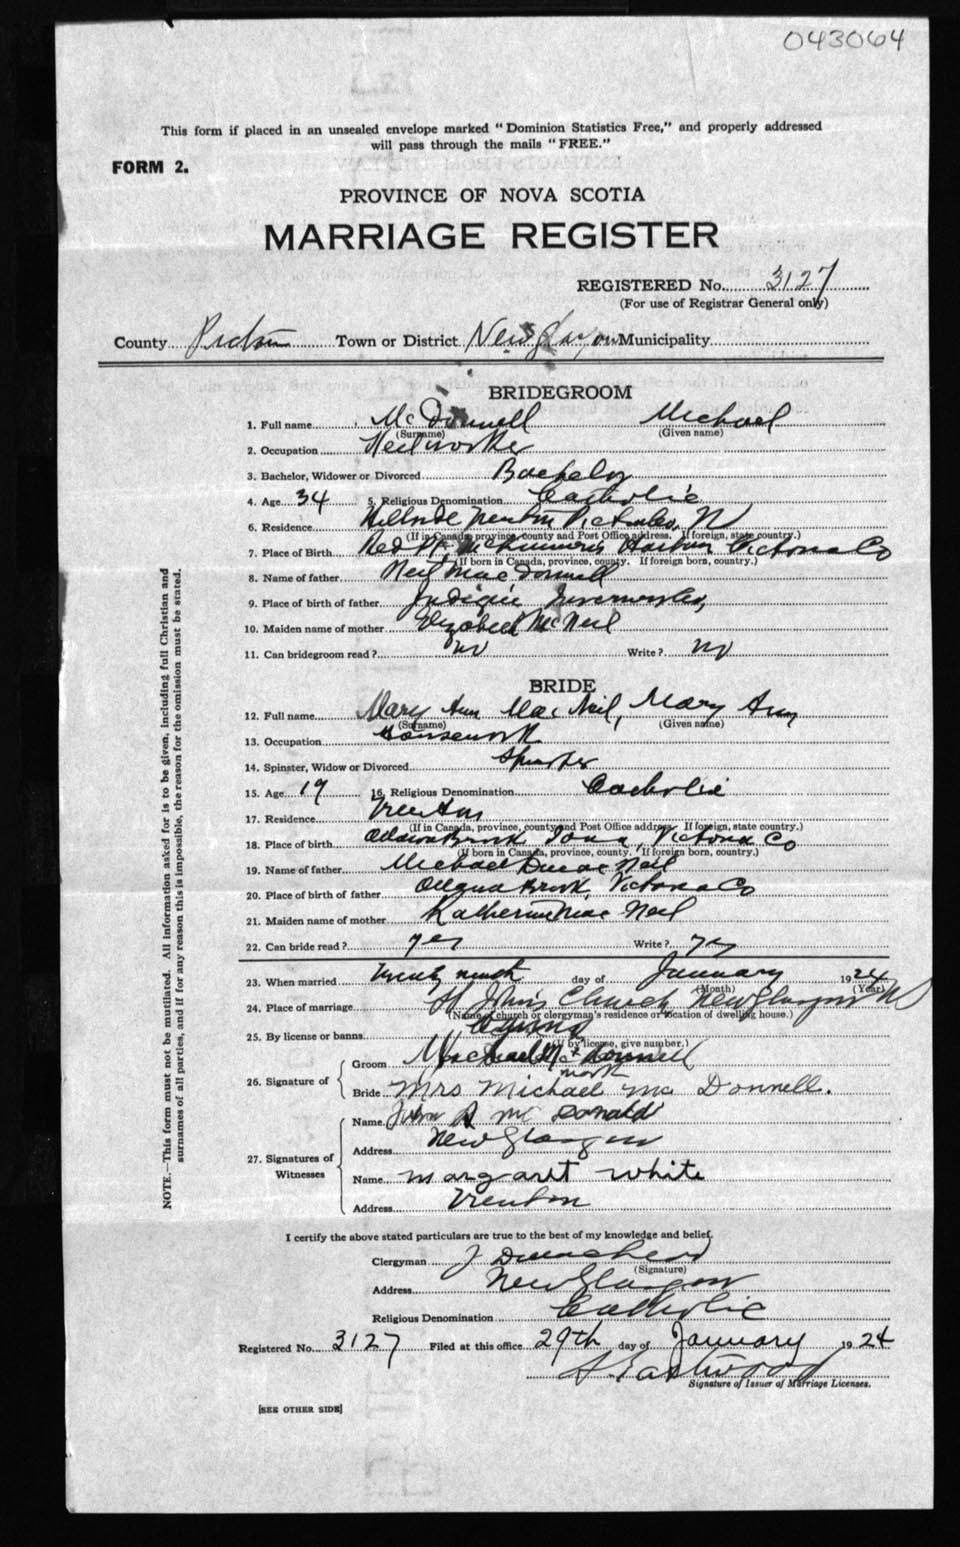 043064
This form if placed in an unsealed envelope marked "Dominion Statistics Free," and properly addressed
will pass through the mails "FREE."
FORM 2.
PROVINCE OF NOVA SCOTIA
MARRIAGE REGISTER
REGISTERED No. 3127
(For use of Registrar General only)
County Pictou Town or District New Glasgow Municipality
BRIDEGROOM
1. Full name Mc Donnell Michael
(Surname) (Given name)
2. Occupation Steelworker
3. Bachelor, Widower or Divorced Bachelor
4. Age 34 5. Religious Denomination Catholic
6. Residence Hillside Trenton Pictou Co, N
(If in Canada, province, county and Post Office address. If foreign, state country.)
7. Place of Birth Red Pt. McKinnons Harbor Victoria Co
(If born in Canada, province, county. If foreign born, country.)
8. Name of father Neil MacDonnell
9. Place of birth of father Judique Inverness Co,
10. Maiden name of mother Elizabeth McNeil
11. Can bridegroom read? no Write? no
BRIDE
12. Full name Mary Ann MacNeil, Mary Ann
(Surname) (Given name)
13. Occupation Housework
14. Spinster, Widow or Divorced Spinster
15. Age 19 16. Religious Denomination Catholic
17. Residence Trenton
(If in Canada, province, county and Post Office address. If foreign, state country.)
18. Place of birth Brook Iona, Victoria Co
(If born in Canada, province, county. If foreign born, country.)
19. Name of father Michael D MacNeil
20. Place of birth of father Brook Victoria Co
21. Maiden name of mother Katherine MacNeil
22. Can bride read? yes Write? yes
23. When married twenty ninth day of January 1924
(Month) (Year)
24. Place of marriage St John's Church New Glasgow NS
(Name of church or clergyman's residence or location of dwelling house.)
25. By license or banns
(If by license, give number.)
26. Signature of
Groom Michael McDonnell
mark
Bride Mrs Michael Mc Donnell.
27. Signatures of Witnesses
Name John A McDonald
Address New Glasgow
Name Margaret White
Address Trenton
I certify the above stated particulars are true to the best of my knowledge and belief.
Clergyman J
(Signature)
Address New Glasgow
Religious Denomination Catholic
Registered No. 3127 Filed at this office 29th day of January 1924
A. Eastwood
Signature of Issuer of Marriage Licenses.
[SEE OTHER SIDE]
NOTE.—This form must not be mutilated. All information asked for is to be given, including full Christian and
surnames of all parties, and if for any reason this is impossible, the reason for the omission must be stated.